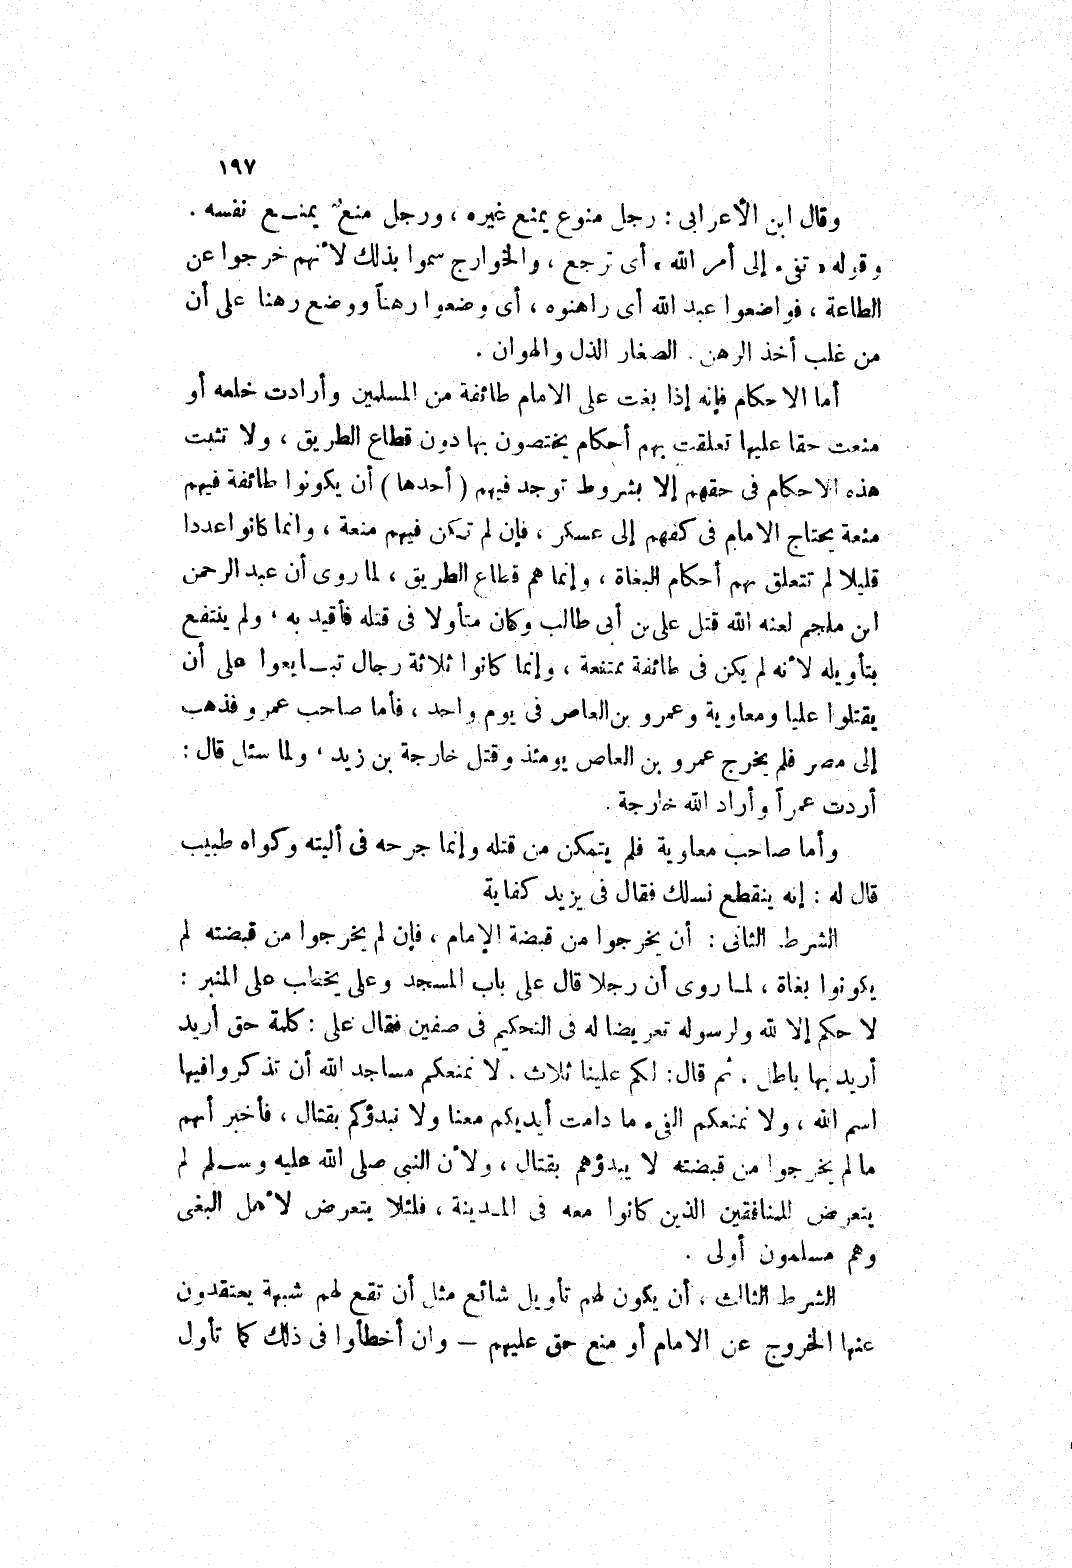 ١٩٧
وقال ابن الأعرابى : رجل منوع يمنع غيره ، ورجل منع يمنـــع نفسه .
وقوله « تفىء إلى أمر الله » أى ترجع ، والخوارج سموا بذلك لأنهم خرجوا عن
الطاعة ، فواضعوا عبد الله أى راهنوه ، أى وضعوا رهناً ووضع رهنا على أن
من غلب أخذ الرهن . الصغار الذل والهوان .
أما الاحكام فإنه إذا بغت على الامام طائفة من المسلمين وأرادت خلعه أو
منعت حقا عليها تعلقت بهم أحكام يختصون بها دون قطاع الطريق ، ولا تثبت
هذه الاحكام فى حقهم إلا بشروط توجد فيهم ( أحدها ) أن يكونوا طائفة فيهم
منعة يحتاج الامام فى كفهم إلى عسكر ، فإن لم تكن فيهم منعة ، وانما كانوا عددا
قليلا لم تتعلق بهم أحكام البغاة ، وإنما هم قطاع الطريق ، لما روى أن عبد الرحمن
ابن ملجم لعنه الله قتل على بن أبى طالب وكان متأولا فى قتله فأقيد به ، ولم ينتفع
بتأويله لأنه لم يكن فى طائفة ممتنعة ، وإنما كانوا ثلاثة رجال تبـــايعوا على أن
يقتلوا عليا ومعاوية وعمرو بن العاص فى يوم واحد ، فأما صاحب عمرو فذهب
إلى مصر فلم يخرج عمرو بن العاص يومئذ وقتل خارجة بن زيد ، ولما سئل قال :
أردت عمراً وأراد الله خارجة .
وأما صاحب معاوية فلم يتمكن من قتله وإنما جرحه فى أليته وكواه طبيب
قال له : إنه ينقطع نسلك فقال فى يزيد كفاية
الشرط الثانى : أن يخرجوا من قبضة الإمام ، فإن لم يخرجوا من قبضته لم
يكونوا بغاة ، لمـا روى أن رجلا قال على باب المسجد وعلى يخطب على المنبر :
لا حكم إلا لله ولرسوله تعريضا له فى التحكيم فى صفين فقال على : كلمة حق أريد
أريد بها باطل . ثم قال : لكم علينا ثلاث . لا نمنعكم مساجد الله أن تذكروا فيها
اسم الله ، ولا نمنعكم الفىء ما دامت أيديكم معنا ولا نبدؤكم بقتال ، فأخبر أنهم
ما لم يخرجوا من قبضته لا يبدؤهم بقتال ، ولأن النبى صلى الله عليه وســـلم لم
يتعرض للمنافقين الذين كانوا معه فى المـدينة ، فلئلا يتعرض لأهل البغى
وهم مسلمون أولى .
الشرط الثالث ، أن يكون لهم تأويل شائع مثل أن تقع لهم شبهة يعتقدون
عنها الخروج عن الامام أو منع حق عليهم – وان أخطأوا فى ذلك كما تأول